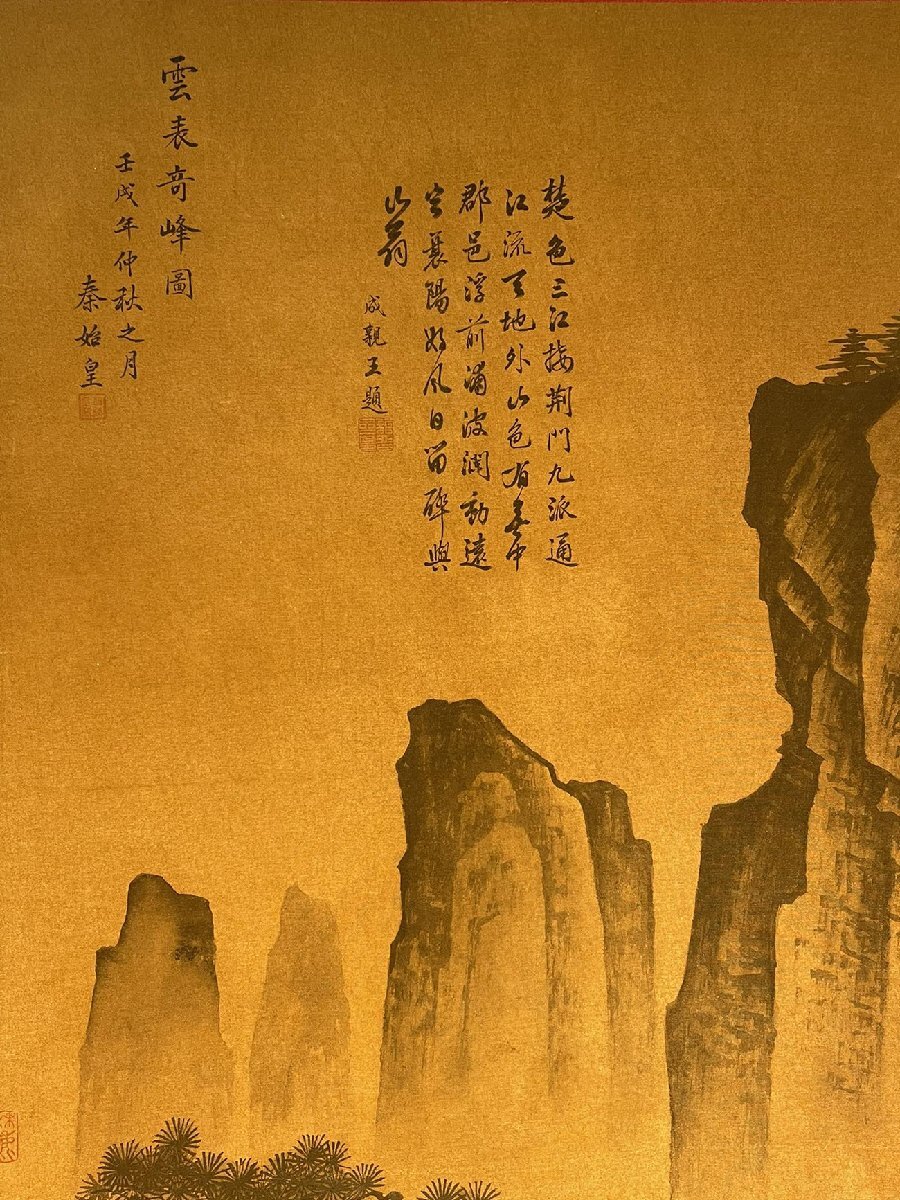 楚色三江接荊門九派通
江流天地外山色有無中
郡邑浮前浦波瀾動遠
空襄陽好風日留醉與
山翁
成親王題
雲表奇峰圖
壬戌年仲秋之月
秦始皇